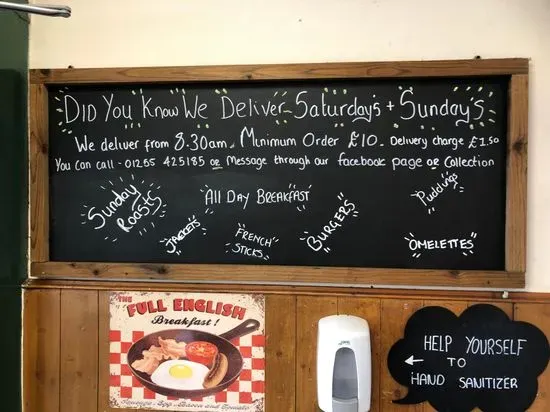 DID YOU KNOW WE DELIVER SATURDAY'S + SUNDAY'S
We deliver from 8.30am. Minimum Order £10. Delivery charge £1.50
You can call - 01255 425185 or Message through our facebook page or Collection
Sunday
Roasts
JACKETS
ALL DAY BREAKFAST
FRENCH
STICKS
BURGERS
Puddings
OMELETTES
THE
FULL ENGLISH
Breakfast!
Sausage, Egg, Bacon and Tomato
HELP YOURSELF
TO
HAND SANITIZER